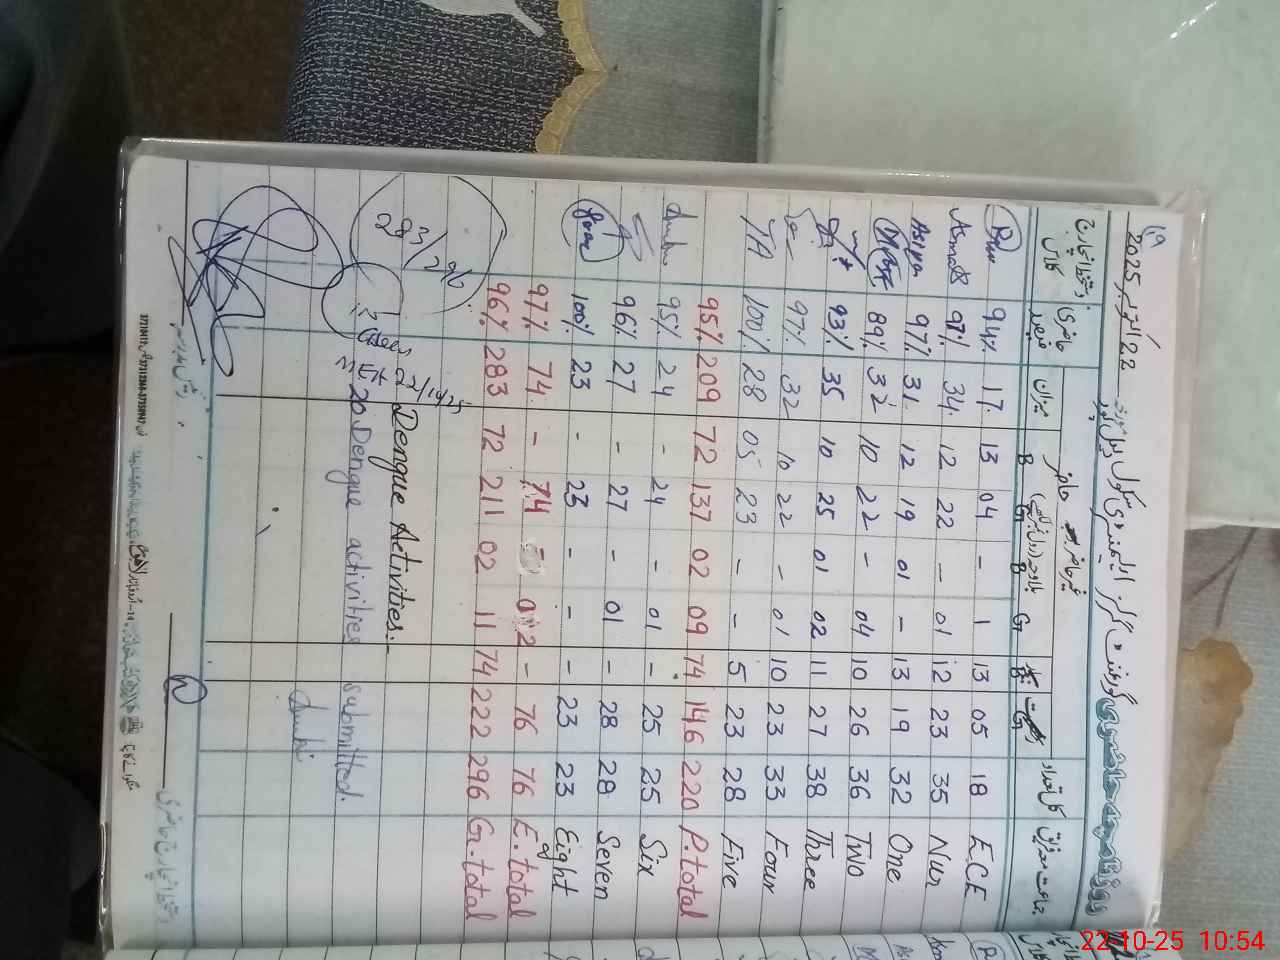 روزنامچہ حاضری
گورنمنٹ گرلز ایلیمنٹری سکول
22 اکتوبر 2025
جماعت کل تعداد غیر حاضر حاضر میزان فیصد حاضری دستخط انچارج کلاس
G B G B G B
ECE 18 05 13 1 - 04 13 17 94%
Nur 35 23 12 01 - 22 12 34 97% Asma
One 32 19 13 - 01 19 12 31 97% Asiya
Two 36 26 10 04 - 22 10 32 89%
Three 38 27 11 02 01 25 10 35 93%
Four 33 23 10 01 - 22 10 32 97%
Five 28 23 5 - - 23 05 28 100%
P.total 220 146 74 09 02 137 72 209 95%
Six 25 25 - 01 - 24 - 24 95%
Seven 28 28 - 01 - 27 - 27 96%
Eight 23 23 - - - 23 - 23 100%
E.total 76 76 - 02 74 - 74 97%
G.total 296 222 74 11 02 211 72 283 96%
283/296
Dengue Activities:-
MEA 22/10/25
20 Dengue activities submitted.
دستخط انچارج حاضری
22-10-25 10:54